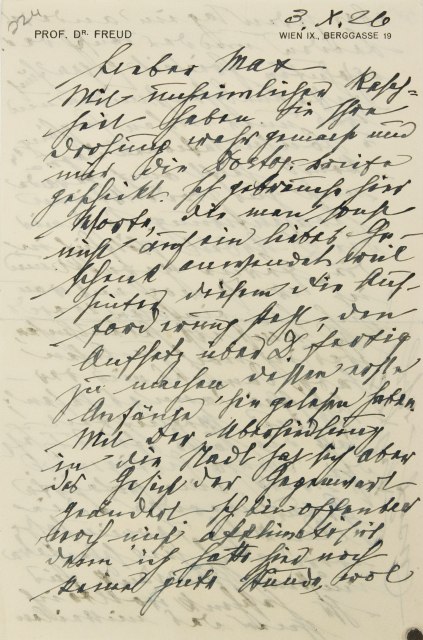 3. X. 26
PROF. DR. FREUD
WIEN IX., BERGGASSE 19
Lieber Max
Mit unheimlicher Rasch=
heit haben Sie Ihre
Drohung wahr gemacht und
mir die Dostoj.-briefe
geschickt. Ich gebrauche hier
Worte, die man sonst
nicht auf ein liebes Ge-
schenk anwendet weil
hinter diesem die Auf-
forderung steht, den
Aufsatz über D. fertig
zu machen dessen erste
Anfänge Sie gelesen haben.
Mit der Übersiedlung
in die Stadt hat sich aber
das Gesicht der Gegenwart
geändert. Ich bin offenbar
noch nicht akklimatisirt
denn ich hatte hier noch
keine gute Stunde, wol